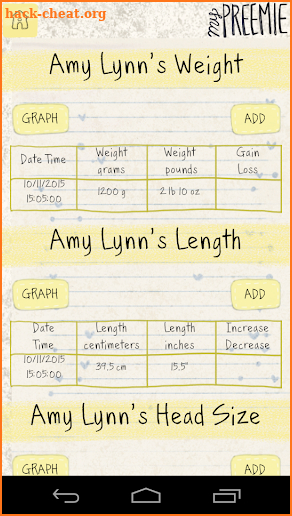 my PREEMIE
Amy Lynn's Weight
GRAPH ADD
Date Time Weight grams Weight pounds Gain Loss
10/11/2015 15:05:00 1200 g 2 lb 10 oz
Amy Lynn's Length
GRAPH ADD
Date Time Length centimeters Length inches Increase Decrease
10/11/2015 15:05:00 39.5 cm 15.5"
Amy Lynn's Head Size
GRAPH ADD
hack-cheat.org